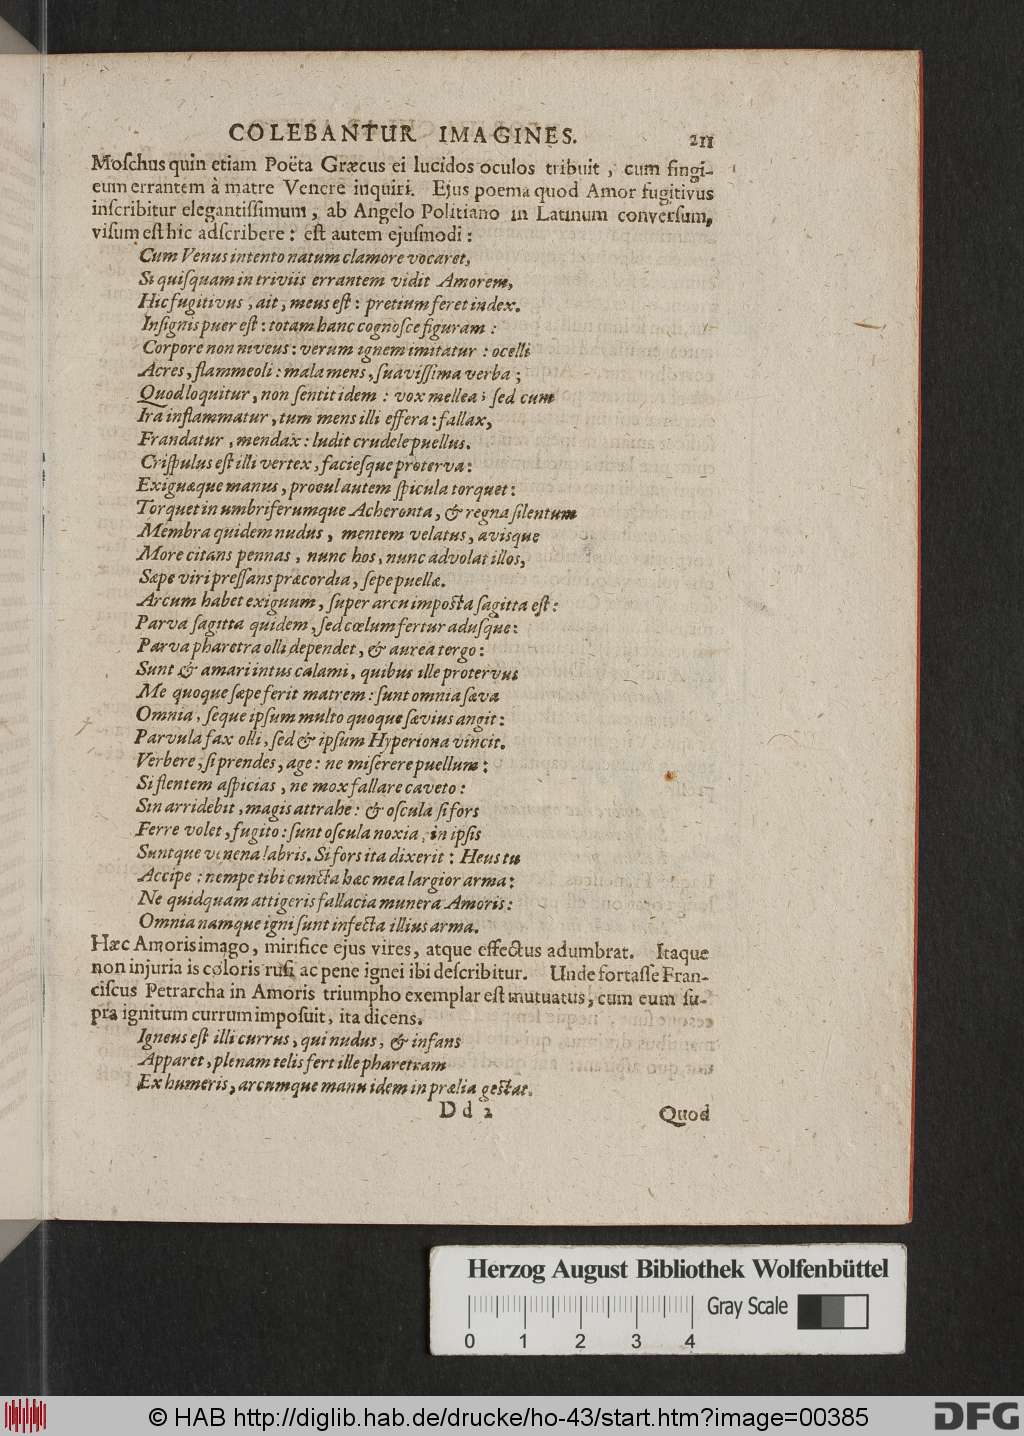 COLEBANTUR IMAGINES. 211
Moſchus quin etiam Poëta Græcus ei lucidos oculos tribuit, cum fingi-
eum errantem à matre Venere inquiri. Ejus poema quod Amor fugitivus
inſcribitur elegantiſſimum, ab Angelo Politiano in Latinum converſum,
viſum eſt hic adſcribere: eſt autem ejuſmodi:
Cum Venus intento natum clamore vocaret,
Si quiſquam in triviis errantem vidit Amorem,
Hic fugitivus, ait, meus eſt: pretium feret index.
Inſignis puer eſt: totam hanc cognoſce figuram:
Corpore non niveus: verum ignem imitatur: ocelli
Acres, flammeoli: mala mens, ſuaviſſima verba;
Quod loquitur, non ſentit idem: vox mellea; ſed cum
Ira inflammatur, tum mens illi effera: fallax,
Frandatur, mendax: ludit crudele puellus.
Criſpulus eſt illi vertex, facieſque proterva:
Exiguæque manus, procul autem ſpicula torquet:
Torquet in umbriferumque Acheronta, & regna ſilentum
Membra quidem nudus, mentem velatus, aviſque
More citans pennas, nunc hos, nunc advolat illos,
Sæpe viri preſſans præcordia, ſepe puellæ.
Arcum habet exiguum, ſuper arcu impoſta ſagitta eſt:
Parva ſagitta quidem, ſed cœlum fertur aduſque:
Parva pharetra olli dependet, & aurea tergo:
Sunt & amari intus calami, quibus ille protervus
Me quoque ſæpe ferit matrem: ſunt omnia ſæva
Omnia, ſeque ipſum multo quoque ſævius angit:
Parvula fax olli, ſed & ipſum Hyperiona vincit.
Verbere, ſi prendes, age: ne miſerere puellum:
Si flentem aſpicias, ne mox fallare caveto:
Sin arridebit, magis attrahe: & oſcula ſi fors
Ferre volet, fugito: ſunt oſcula noxia, in ipſis
Suntque venena labris. Si fors ita dixerit: Heus tu
Accipe: nempe tibi cuncta hæc mea largior arma:
Ne quidquam attigeris fallacia munera Amoris:
Omnia namque igni ſunt infecta illius arma.
Hæc Amoris imago, mirifice ejus vires, atque effectus adumbrat. Itaque
non injuria is coloris rufi ac pene ignei ibi deſcribitur. Unde fortaſſe Fran-
ciſcus Petrarcha in Amoris triumpho exemplar eſt mutuatus, cum eum ſu-
pra ignitum currum impoſuit, ita dicens.
Igneus eſt illi currus, qui nudus, & infans
Apparet, plenam telis fert ille pharetram
Ex humeris, arcumque manu idem in prælia geſtat.
Dd 2 Quod
Herzog August Bibliothek Wolfenbüttel
Gray Scale
0 1 2 3 4
© HAB http://diglib.hab.de/drucke/ho-43/start.htm?image=00385
DFG